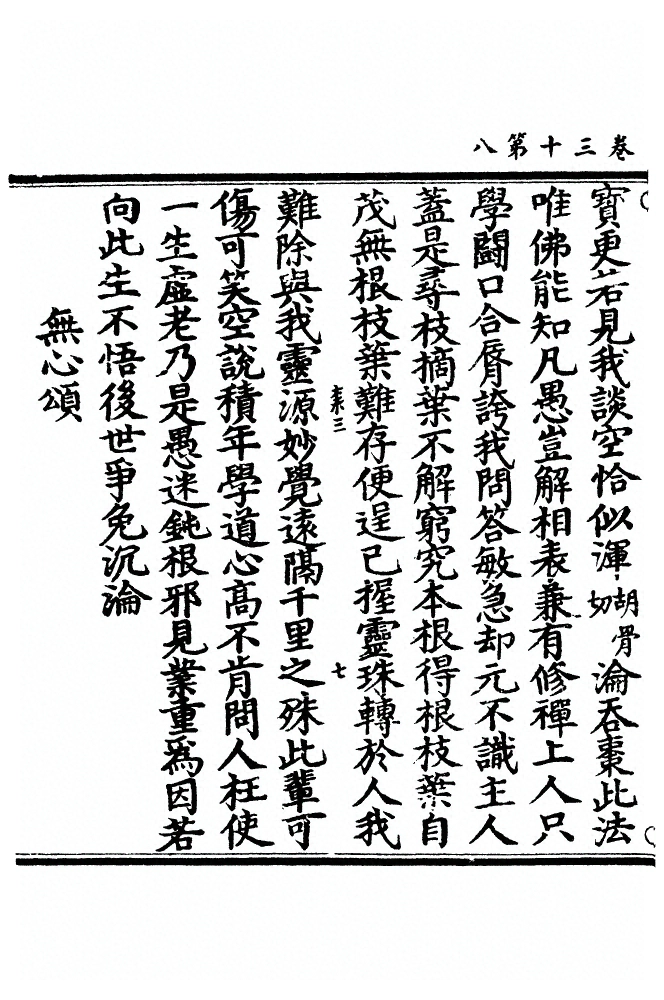 卷三十第八
寶更若見我談空恰似渾胡骨切淪吞棗此法
唯佛能知凡愚豈解相表兼有修禪上人只
學鬪口合脣誇我問答敏急却元不識主人
蓋是尋枝摘葉不解窮究本根得根枝葉自
茂無根枝葉難存便逞已握靈珠轉於人我
三
七
難除與我靈源妙覺遠隔千里之殊此輩可
傷可笑空說積年學道心高不肯問人枉使
一生虛老乃是愚迷鈍根邪見業重爲因若
向此生不悟後世爭免沉淪
無心頌